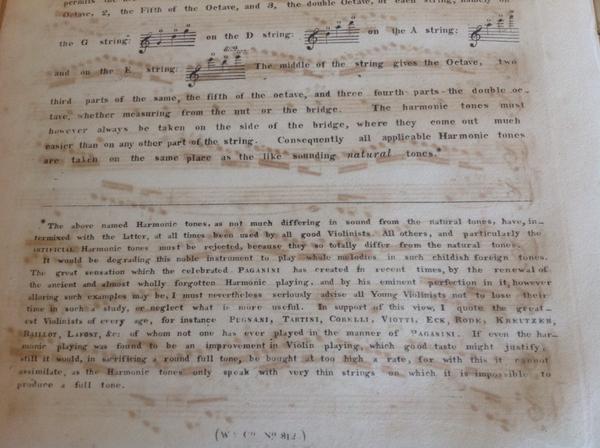 Octave, 2, the Fifth of the Octave, and 3, the double Octave, of each string, namely on
the G string: on the D string: on the A string:
and on the E string: The middle of the string gives the Octave, two
third parts of the same, the fifth of the octave, and three fourth parts the double oc_
tave, whether measuring from the nut or the bridge. The harmonic tones must
however always be taken on the side of the bridge, where they come out much
easier than on any other part of the string. Consequently all applicable Harmonic tones
are taken on the same place as the like sounding natural tones.*
*The above named Harmonic tones, as not much differing in sound from the natural tones, have, in_
termixed with the Latter, at all times been used by all good Violinists. All others, and particularly the
ARTIFICIAL Harmonic tones must be rejected, because they so totally differ from the natural tones.
It would be degrading this noble instrument to play whole melodies in such childish foreign tones.
The great sensation which the celebrated PAGANINI has created in recent times, by the renewal of
the ancient and almost wholly forgotten Harmonic playing, and by his eminent perfection in it, however
alluring such examples may be, I must nevertheless seriously advise all Young Violinists not to lose their
time in such a study, or neglect what is more useful. In support of this view, I quote the great_
est Violinists of every age, for instance PUGNANI, TARTINI, CORELLI, VIOTTI, ECK, RODE, KREUTZER,
BAILLOT, LAFONT, &c: of whom not one has ever played in the manner of PAGANINI. If even the har_
monic playing was found to be an improvement in Violin playing, which good taste might justify,
still it would, in sacrificing a round full tone, be bought at too high a rate, for with this it cannot
assimilate, as the Harmonic tones only speak with very thin strings on which it is impossible to
produce a full tone.
(W & Co. No 812.)